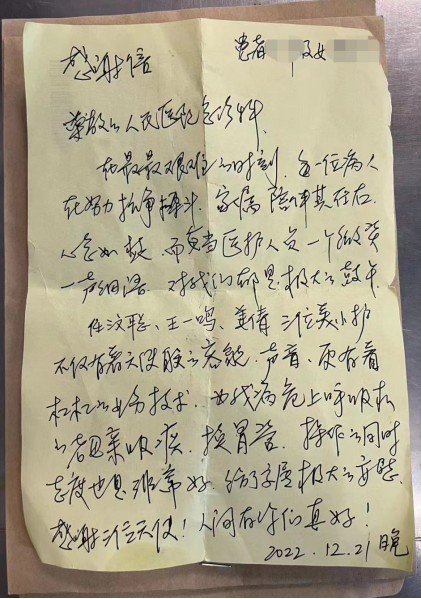 感谢信
患者 女
尊敬的人民医院急诊科
在最最艰难的时刻，每一位病人
在努力抗争搏斗，家属陪伴其左右，
心急如焚，而每当医护人员一个微笑
一声细语，对我们都是极大的鼓午
任汶聪、王一鸣、姜倩三位美小护
不仅有着天使般的容貌、声音，更有着
杠杠的业务技术，为我病危上呼吸机
的老母亲吸痰、换胃管，操作的同时
态度也是非常好，给了家属极大的安慰。
感谢三位天使！人间有你们真好！
2022.12.21晚